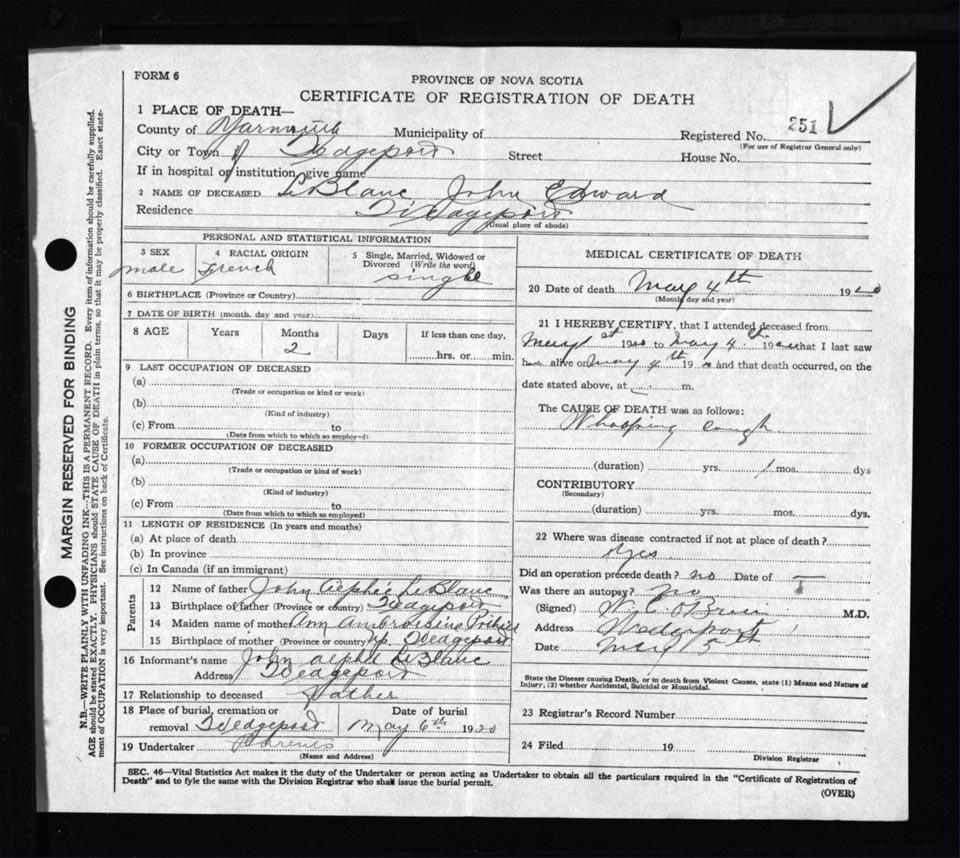 FORM 6
PROVINCE OF NOVA SCOTIA
CERTIFICATE OF REGISTRATION OF DEATH
1 PLACE OF DEATH—
County of Yarmouth Municipality of
Registered No. 251
(For use of Registrar General only)
City or Town of Wedgeport Street House No.
If in hospital or institution, give name
2 NAME OF DECEASED LeBlanc John Edward
Residence Wedgeport
(Usual place of abode)
PERSONAL AND STATISTICAL INFORMATION
3 SEX male
4 RACIAL ORIGIN French
5 Single, Married, Widowed or Divorced (Write the word) single
6 BIRTHPLACE (Province or Country)
7 DATE OF BIRTH (month, day and year)
8 AGE Years Months 2 Days If less than one day, hrs. or min.
9 LAST OCCUPATION OF DECEASED
(a)
(Trade or occupation or kind or work)
(b)
(Kind of industry)
(c) From to
(Date from which to which so employed)
10 FORMER OCCUPATION OF DECEASED
(a)
(Trade or occupation or kind of work)
(b)
(Kind of industry)
(c) From to
(Date from which to which so employed)
11 LENGTH OF RESIDENCE (In years and months)
(a) At place of death
(b) In province
(c) In Canada (if an immigrant)
Parents
12 Name of father John Alphée LeBlanc
13 Birthplace of father (Province or country) Wedgeport
14 Maiden name of mother Ann Ambroisine Pothier
15 Birthplace of mother (Province or country) Wedgeport
16 Informant's name John Alphé LeBlanc
Address Wedgeport
17 Relationship to deceased Father
18 Place of burial, cremation or removal Wedgeport
Date of burial May 6th 1920
19 Undertaker Parents
(Name and Address)
MEDICAL CERTIFICATE OF DEATH
20 Date of death May 4th 1920
(Month, day and year)
21 I HEREBY CERTIFY, that I attended deceased from
May 1st 1920 to May 4th 1920 that I last saw
alive on May 4th 19 and that death occurred, on the
date stated above, at m.
The CAUSE OF DEATH was as follows:
Whooping cough
(duration) yrs. 1 mos. dys
CONTRIBUTORY
(Secondary)
(duration) yrs. mos. dys.
22 Where was disease contracted if not at place of death?
yes
Did an operation precede death? no Date of
Was there an autopsy? no
(Signed) W. C. O'Brien M.D.
Address Wedgeport
Date May 5th
State the Disease causing Death, or in death from Violent Causes, state (1) Means and Nature of
Injury, (2) whether Accidental, Suicidal or Homicidal.
23 Registrar's Record Number
24 Filed 19
Division Registrar
SEC. 46—Vital Statistics Act makes it the duty of the Undertaker or person acting as Undertaker to obtain all the particulars required in the "Certificate of Registration of
Death" and to fyle the same with the Division Registrar who shall issue the burial permit.
(OVER)
MARGIN RESERVED FOR BINDING
N.B.—WRITE PLAINLY WITH UNFADING INK—THIS IS A PERMANENT RECORD. Every item of information should be carefully supplied.
AGE should be stated EXACTLY. PHYSICIANS should STATE CAUSE OF DEATH in plain terms, so that it may be properly classified. Exact state-
ment of OCCUPATION is very important. See instructions on back of Certificate.